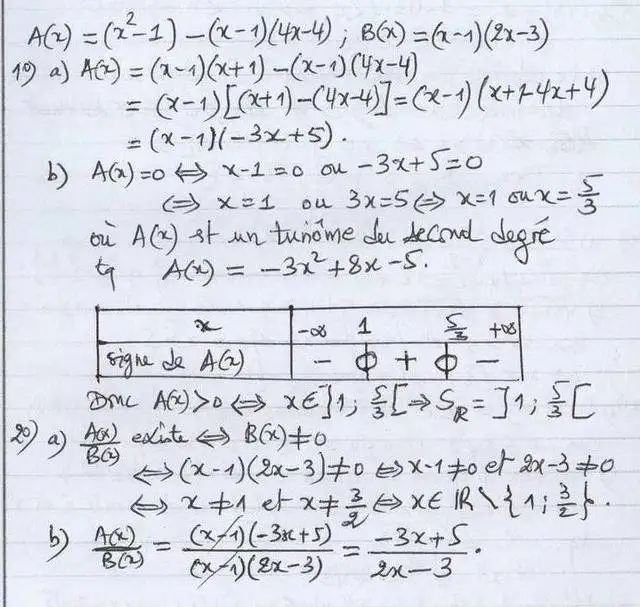 A(x) = (x²-1) - (x-1)(4x-4) ; B(x) = (x-1)(2x-3)
1°) a) A(x) = (x-1)(x+1) - (x-1)(4x-4)
= (x-1)[(x+1) - (4x-4)] = (x-1)(x+1-4x+4)
= (x-1)(-3x+5).
b) A(x)=0 ⇔ x-1=0 ou -3x+5=0
⇔ x=1 ou 3x=5 ⇔ x=1 ou x=5/3
où A(x) est un trinôme du second degré
tq A(x) = -3x²+8x-5.
x -∞ 1 5/3 +∞
signe de A(x) - 0 + 0 -
Donc A(x)>0 ⇔ x∈]1 ; 5/3[ ⇒ S_ℝ = ]1 ; 5/3[
2°) a) A(x)/B(x) existe ⇔ B(x)≠0
⇔ (x-1)(2x-3)≠0 ⇔ x-1≠0 et 2x-3≠0
⇔ x≠1 et x≠3/2 ⇔ x∈ℝ\{1 ; 3/2}.
b) A(x)/B(x) = (x-1)(-3x+5)/(x-1)(2x-3) = -3x+5/2x-3.